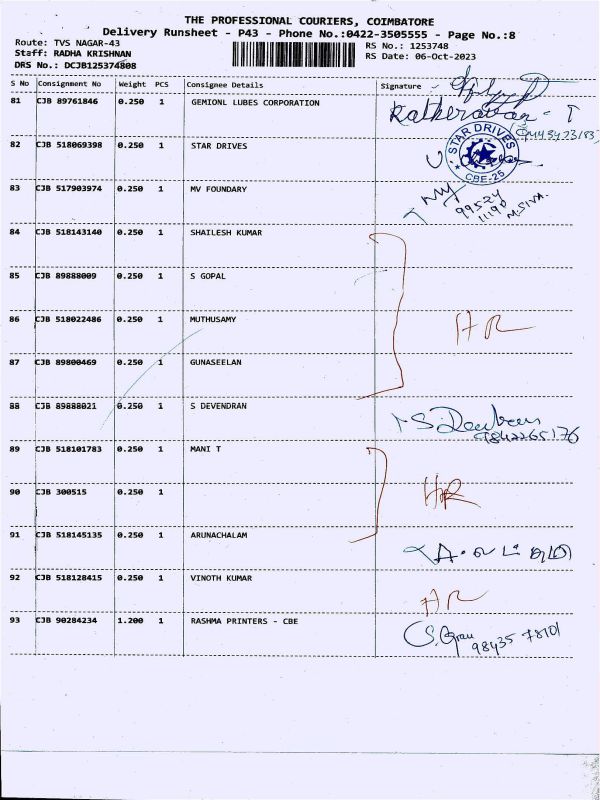 THE PROFESSIONAL COURIERS, COIMBATORE
Delivery Runsheet - P43 - Phone No.:0422-3505555 - Page No.:8
Route: TVS NAGAR-43
RS No.: 1253748
Staff: RADHA KRISHNAN
RS Date: 06-Oct-2023
DRS No.: DCJB125374808
S No Consignment No Weight PCS Consignee Details Signature
81 CJB 89761846 0.250 1 GEMIONL LUBES CORPORATION
82 CJB 518069398 0.250 1 STAR DRIVES
STAR DRIVES
CBE-25
83 CJB 517903974 0.250 1 MV FOUNDARY
MV
99524
M.SIVA.
84 CJB 518143140 0.250 1 SHAILESH KUMAR
85 CJB 89888009 0.250 1 S GOPAL
86 CJB 518022486 0.250 1 MUTHUSAMY
HR
87 CJB 89800469 0.250 1 GUNASEELAN
88 CJB 89888021 0.250 1 S DEVENDRAN
9842265176
89 CJB 518101783 0.250 1 MANI T
90 CJB 300515 0.250 1
HR
91 CJB 518145135 0.250 1 ARUNACHALAM
92 CJB 518128415 0.250 1 VINOTH KUMAR
HR
93 CJB 90284234 1.200 1 RASHMA PRINTERS - CBE
98435 78101